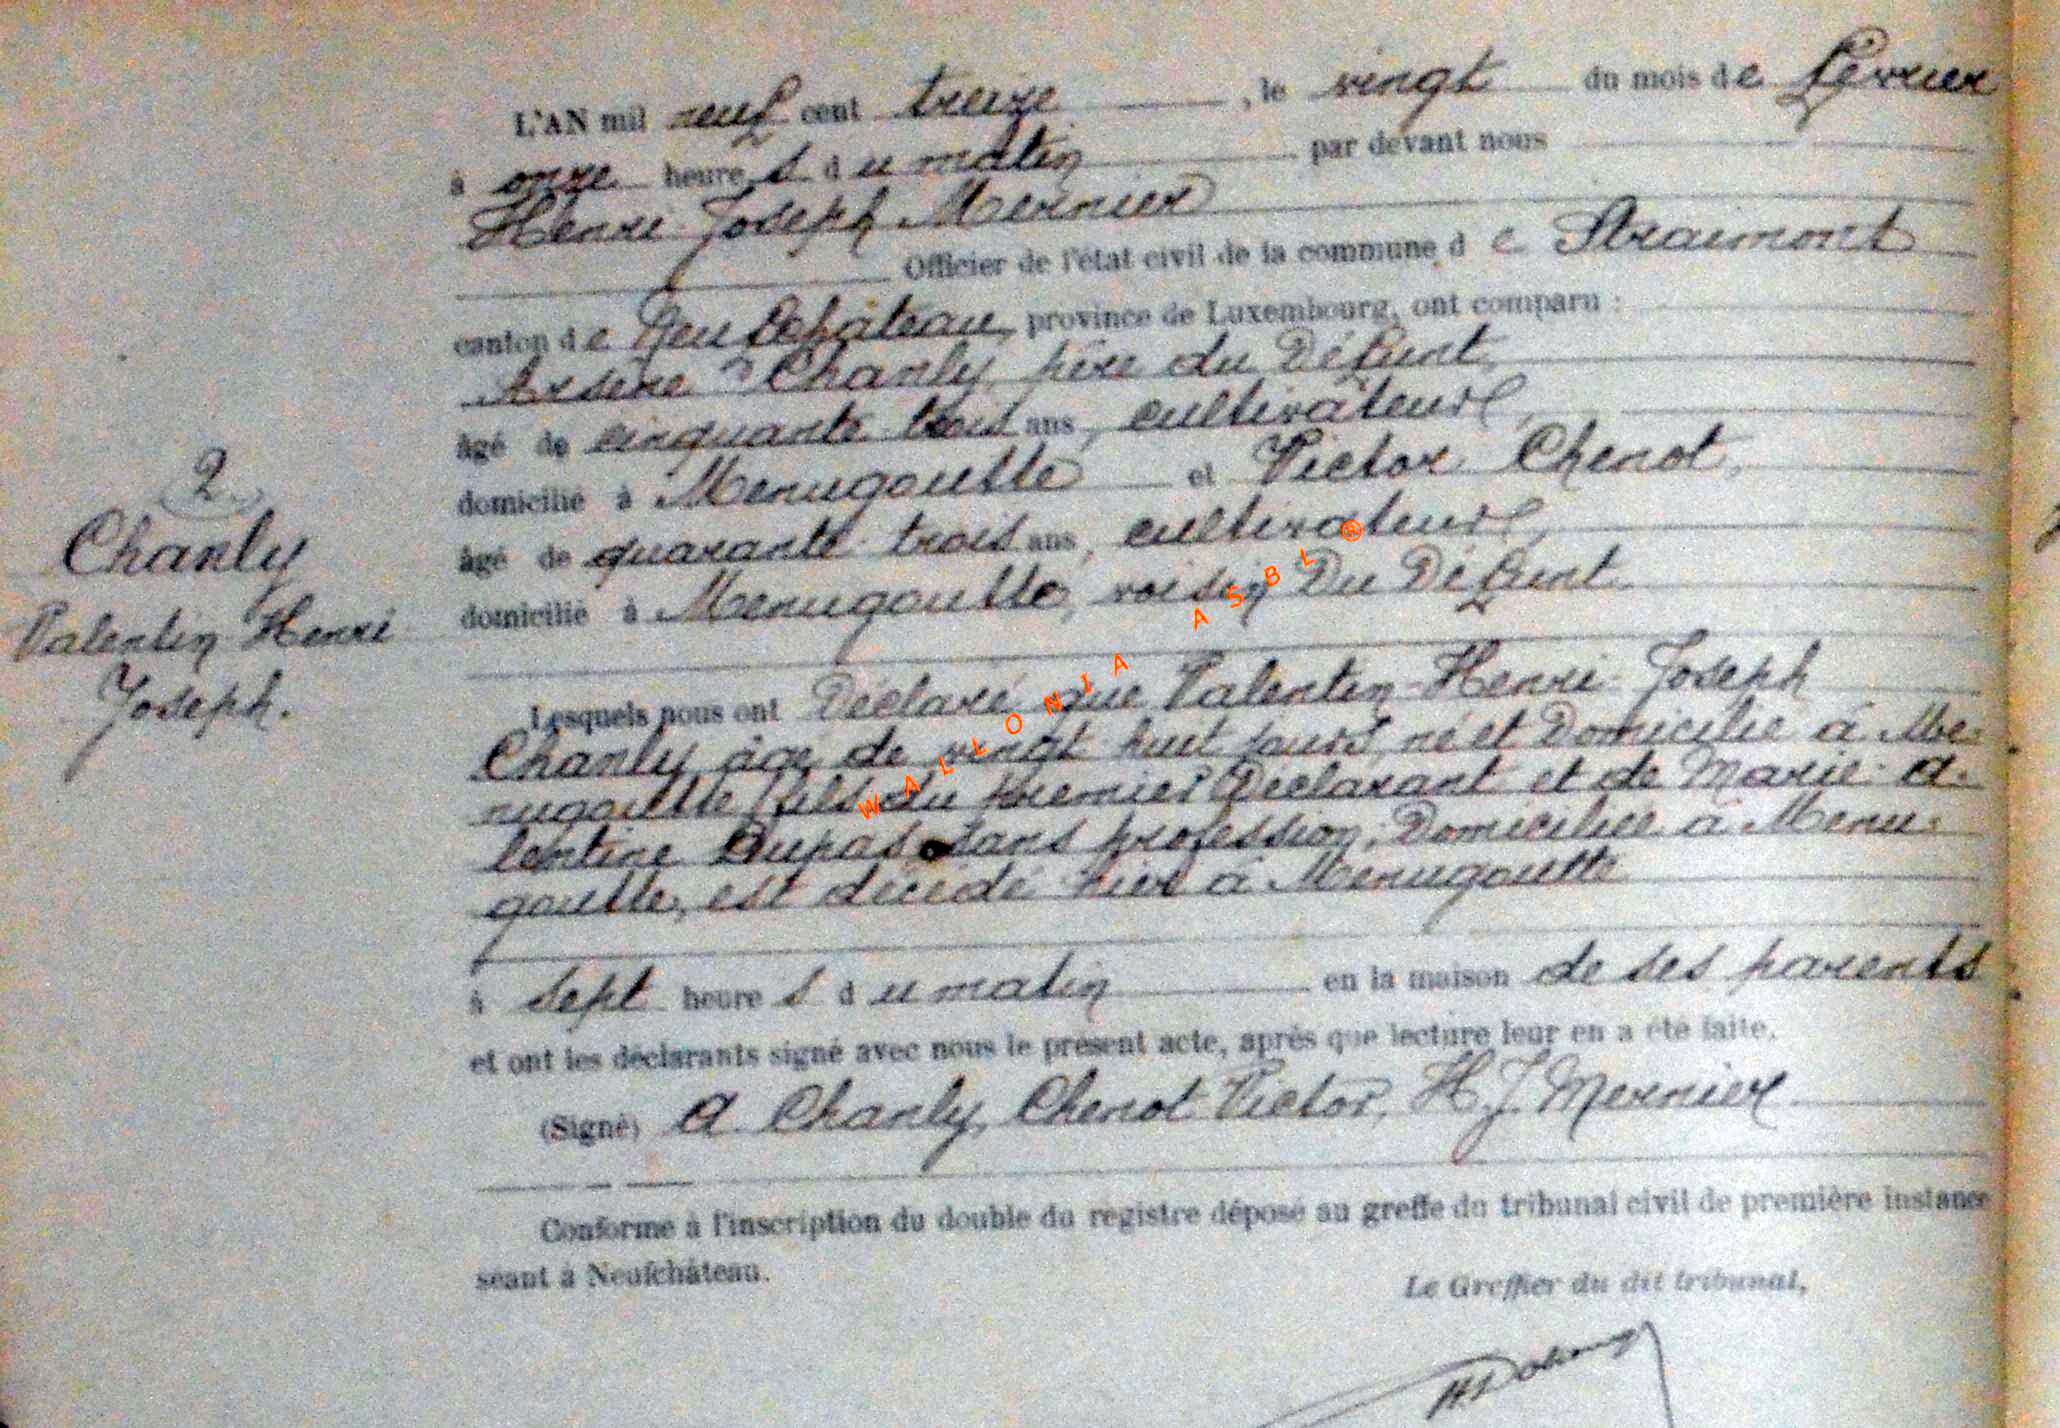 L'AN mil neuf cent treize , le vingt du mois de Février
à onze heures du matin par devant nous
Henri Joseph Mernier
Officier de l'état civil de la commune de Straimont
canton de Neufchâteau, province de Luxembourg, ont comparu :
Arsène Chanly, père du Défunt,
âgé de cinquante trois ans, cultivateur,
domicilié à Menugoutte et Victor Chenot,
âgé de quarante trois ans, cultivateur,
domicilié à Menugoutte, voisin Du Défunt
2
Chanly
Valentin Henri
Joseph.
Lesquels nous ont Déclaré que Valentin-Henri-Joseph
Chanly âgé de vingt huit jours, né et Domicilié à Me-
nugoutte fils du premier Déclarant et de Marie-
Dupas sans profession, Domiciliée à Menu-
goutte, est décédé hier à Menugoutte
à sept heures du matin en la maison de ses parents
et ont les déclarants signé avec nous le présent acte, après que lecture leur en a été faite.
(Signé) A. Chanly, Chenot Victor, H. J. Mernier
Conforme à l'inscription du double du registre déposé au greffe du tribunal civil de première instance
séant à Neufchâteau.
Le Greffier du dit tribunal,
WALLONIA ASBL ®